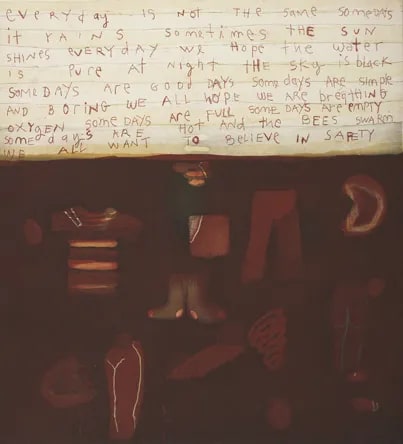 everyday is NOT THE same sometimes
it RAINS sometimes THE SUN
SHINES everyday we Hope the water
is Pure AT Night THE sky is black
some DAYS are GOOD DAYS some days are simple
AND BORING WE ALL HOPE WE are breathing
OXYGEN some DAYS are FULL some DAYS are empty
some days ARE HOT AND the BEES SWARM
WE ALL WANT TO BELIEVE IN SAFETY